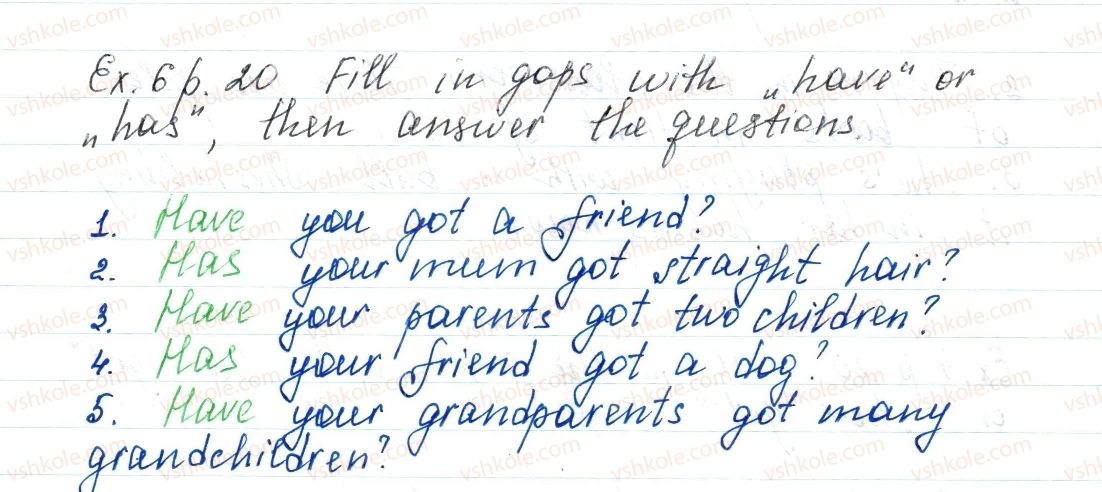 Ex. 6 p. 20 Fill in gaps with „have" or
„has", then answer the questions.
1. Have you got a friend?
2. Has your mum got straight hair?
3. Have your parents got two children?
4. Has your friend got a dog?
5. Have your grandparents got many
grandchildren?